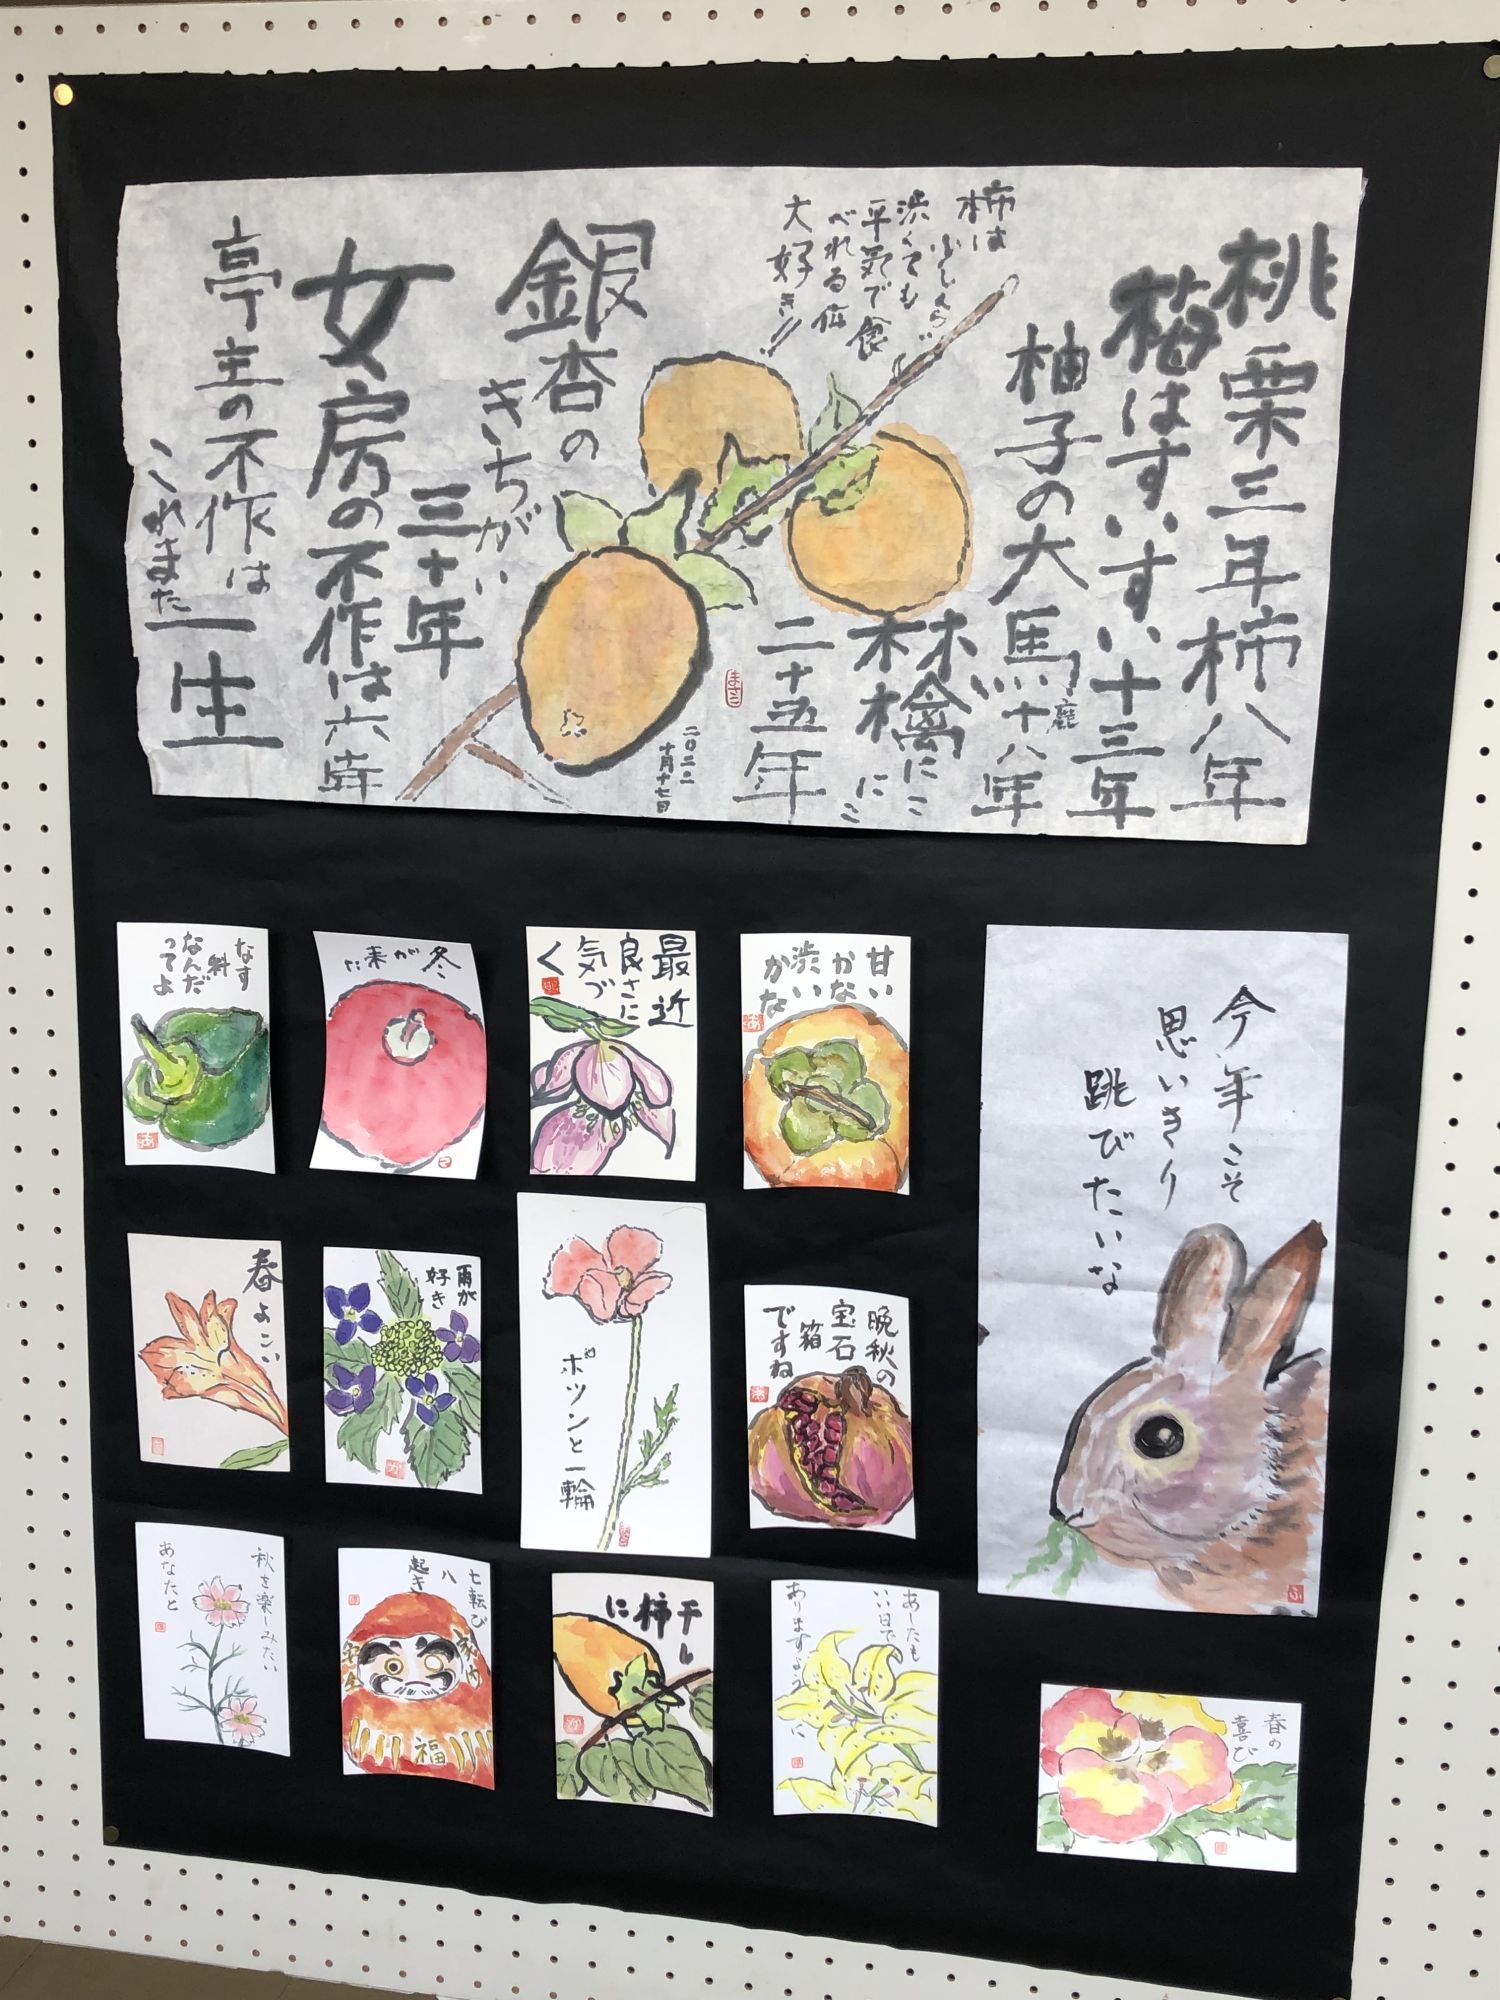 桃栗三年柿八年
梅はすいすい十三年
柚子の大馬鹿十八年
林檎にこ
林檎にこ
二十五年
柿は
少しぐらい
渋くても
平気で食
べれる位
大好き!!
銀杏の
きちがい
三十年
女房の不作は六年
亭主の不作は
これまた一生
まさこ
二〇二二
十月十七日
なす
科
なんだ
ってよ
あ
冬
が
来
た
最近
良さに
気づ
く
甘い
かな
渋い
かな
あ
今年こそ
思いきり
跳びたいな
ふ
春よこい
雨が
好き
か
ポツンと一輪
晩秋の
宝石
箱
ですね
あ
秋を楽しみたい
あなたと
七転び
八
起き
家内
安全
福
干し
柿
に
か
あしたも
いい日で
ありますように
春の
喜び